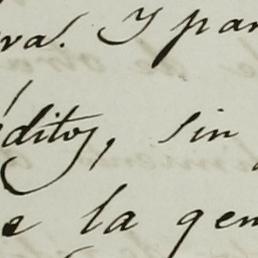 va. Y par
éditos, sin
e la gen